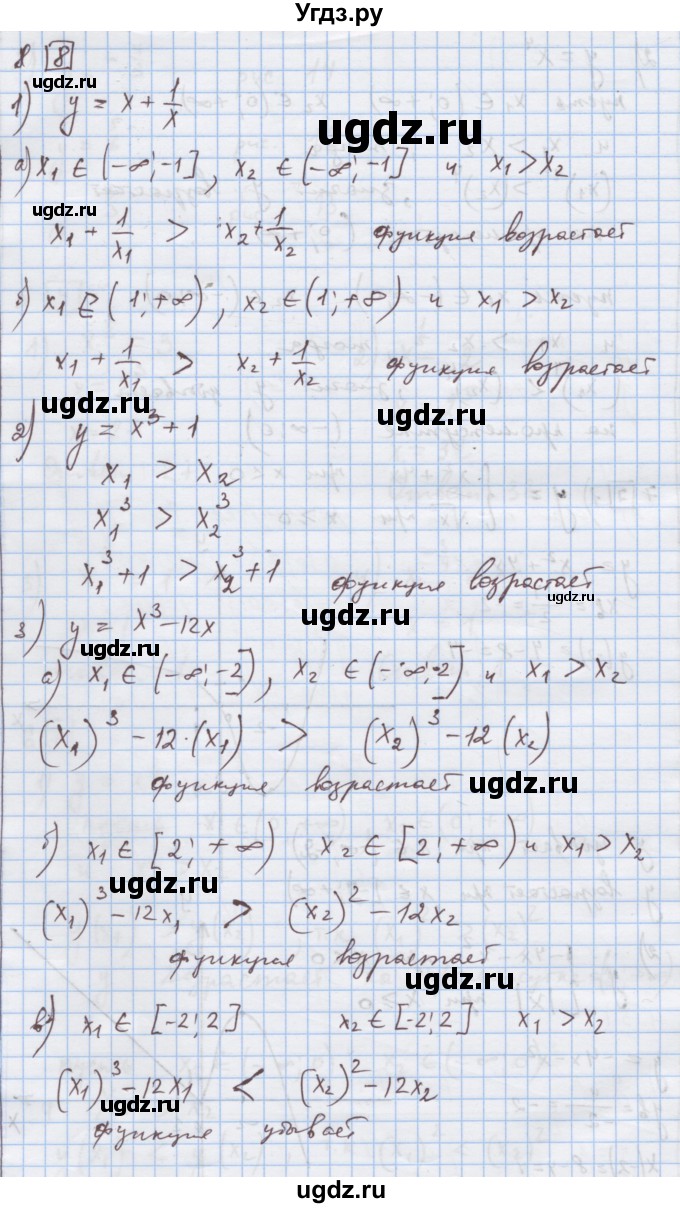 Угдз.ру
8 8
ugdz.ru
1) y = x + 1/x
ugdz.ru
а) x₁ ∈ (-∞; -1], x₂ ∈ (-∞; -1] и x₁ > x₂
ugdz.ru
x₁ + 1/x₁ > x₂ + 1/x₂ функция возрастает
б) x₁ ∈ (1; +∞), x₂ ∈ (1; +∞) и x₁ > x₂
x₁ + 1/x₁ > x₂ + 1/x₂ функция возрастает
ugdz.ru ugdz.ru
2) y = x³ + 1
x₁ > x₂
x₁³ > x₂³
x₁³ + 1 > x₂³ + 1 функция возрастает
ugdz.ru ugdz.ru
3) y = x³ - 12x
ugdz.ru
а) x₁ ∈ (-∞; -2], x₂ ∈ (-∞; -2] и x₁ > x₂
(x₁)³ - 12·(x₁) > (x₂)³ - 12(x₂)
функция возрастает ugdz.ru
б) x₁ ∈ [2; +∞) x₂ ∈ [2; +∞) и x₁ > x₂
ugdz.ru
(x₁)³ - 12x₁ > (x₂)² - 12x₂
функция возрастает
ugdz.ru
в) x₁ ∈ [-2; 2] x₂ ∈ [-2; 2] x₁ > x₂
(x₁)³ - 12x₁ < (x₂)² - 12x₂
ugdz.ru
функция убывает
ugdz.ru